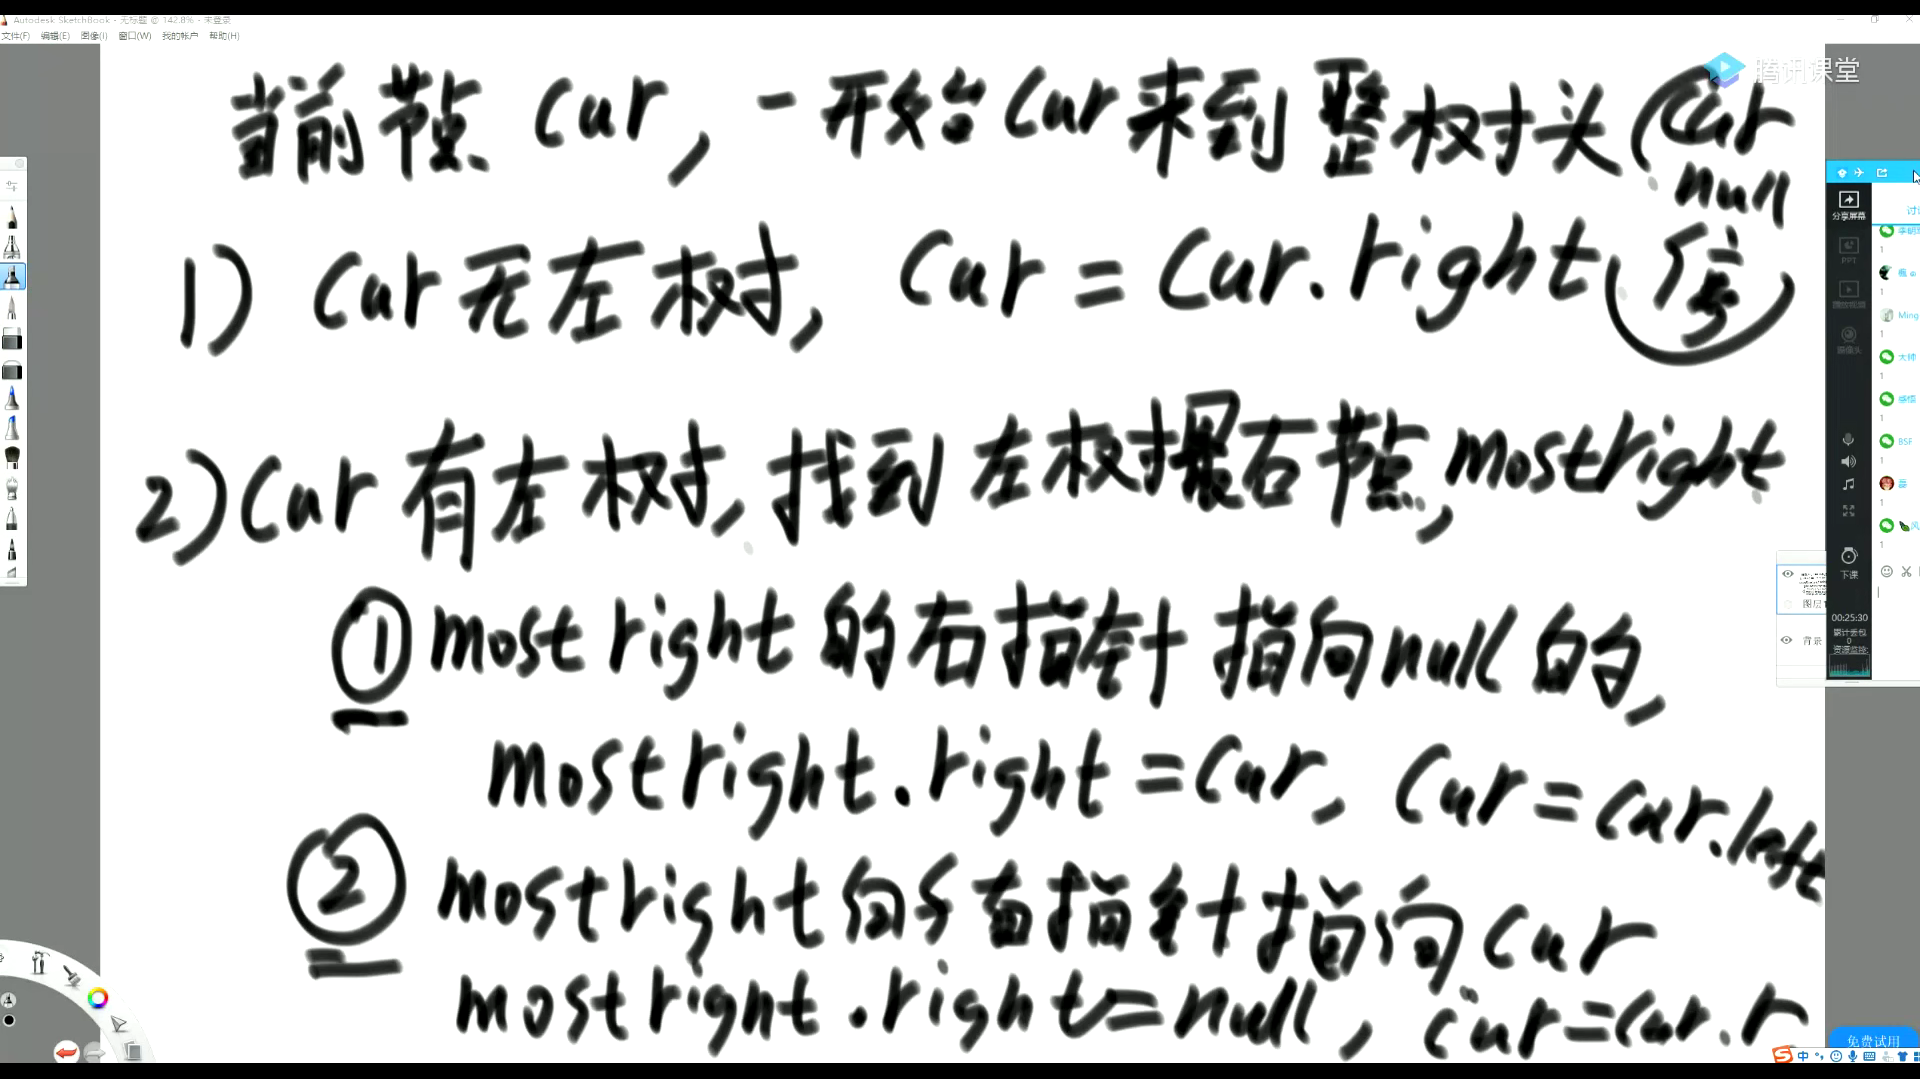 Autodesk SketchBook - 无标题 @ 142.8% - 未登录
文件(F) 编辑(E) 图像(I) 窗口(W) 我的帐户 帮助(H)
腾讯课堂
当前节点 cur, 一开始cur来到整树头 (cur
null
停)
1) cur无左树, cur = cur.right
2) cur有左树, 找到左树最右节点, mostright
① mostright的右指针指向null的,
mostright.right = cur, cur = cur.left
② mostright的右指针指向cur
mostright.right = null, cur = cur.r
分享屏幕
PPT
播放视频
摄像头
下课
00:25:30
累计丢包
0
资源监控:
1
1
Ming
1
大帅
1
1
BSF
1
磊
1
1
图层1
背景
免费试用
中